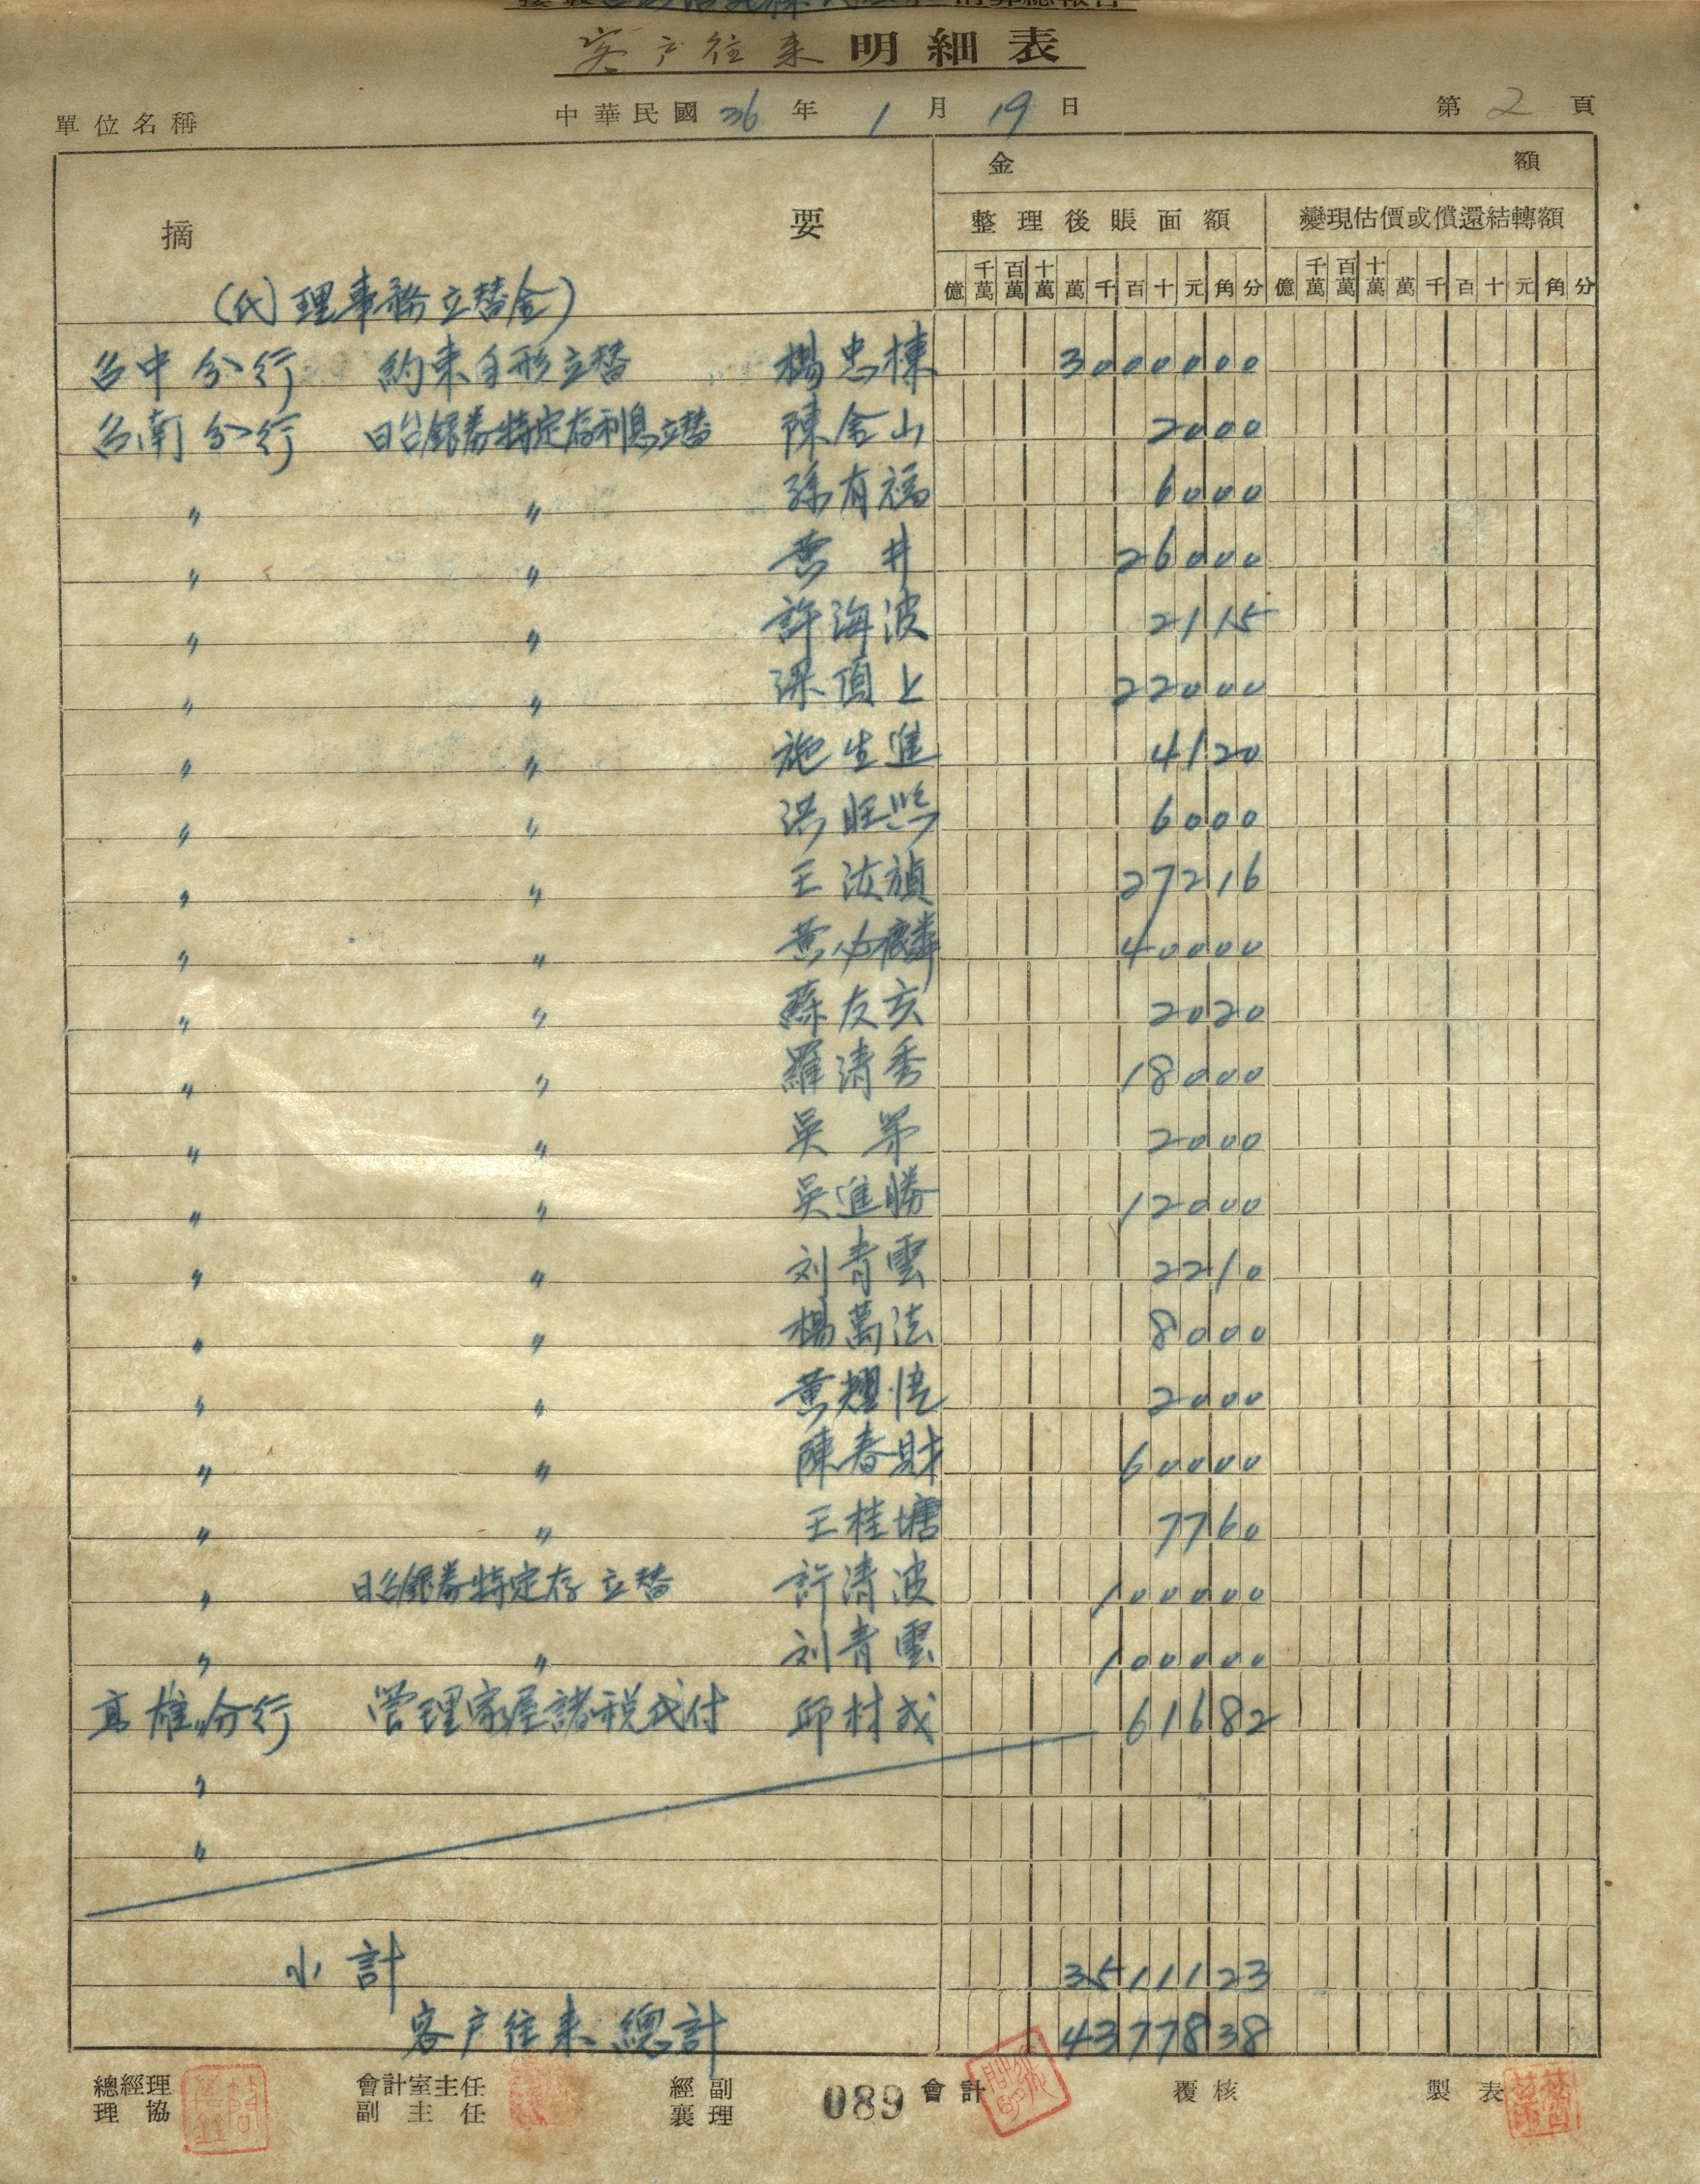 客戶往来明細表
單位名稱 中華民國 36 年 1 月 19 日 第 2 頁
摘要 金額
整理後賬面額 變現估價或償還結轉額
億 千萬 百萬 十萬 萬 千 百 十 元 角 分 億 千萬 百萬 十萬 萬 千 百 十 元 角 分
(代)理事務立替金)
台中分行 約束手形立替 楊忠棟 3000000
台南分行 日台銀券特定存利息立替 陳金山 2000
〃 〃 孫有福 6000
〃 〃 黃井 26000
〃 〃 許海波 2115
〃 〃 頂上 22000
〃 〃 施生進 4120
〃 〃 洪旺 6000
〃 〃 王 27216
〃 〃 黃必麟 40000
〃 〃 蘇友亥 2020
〃 〃 羅清秀 18000
〃 〃 吳 2000
〃 〃 吳進勝 12000
〃 〃 刘青雲 2210
〃 〃 楊萬法 8000
〃 〃 黃耀 2000
〃 〃 陳春財 60000
〃 〃 王桂塘 7760
〃 日台銀券特定存立替 許清波 100000
〃 〃 刘青雲 100000
高雄分行 管理家屋諸稅代付 邱材成 61682
〃
〃
小計 3511123
客戶往来總計 4377838
總經理 會計室主任 經副 089 會計 覆核 製表
協理 副主任 襄理